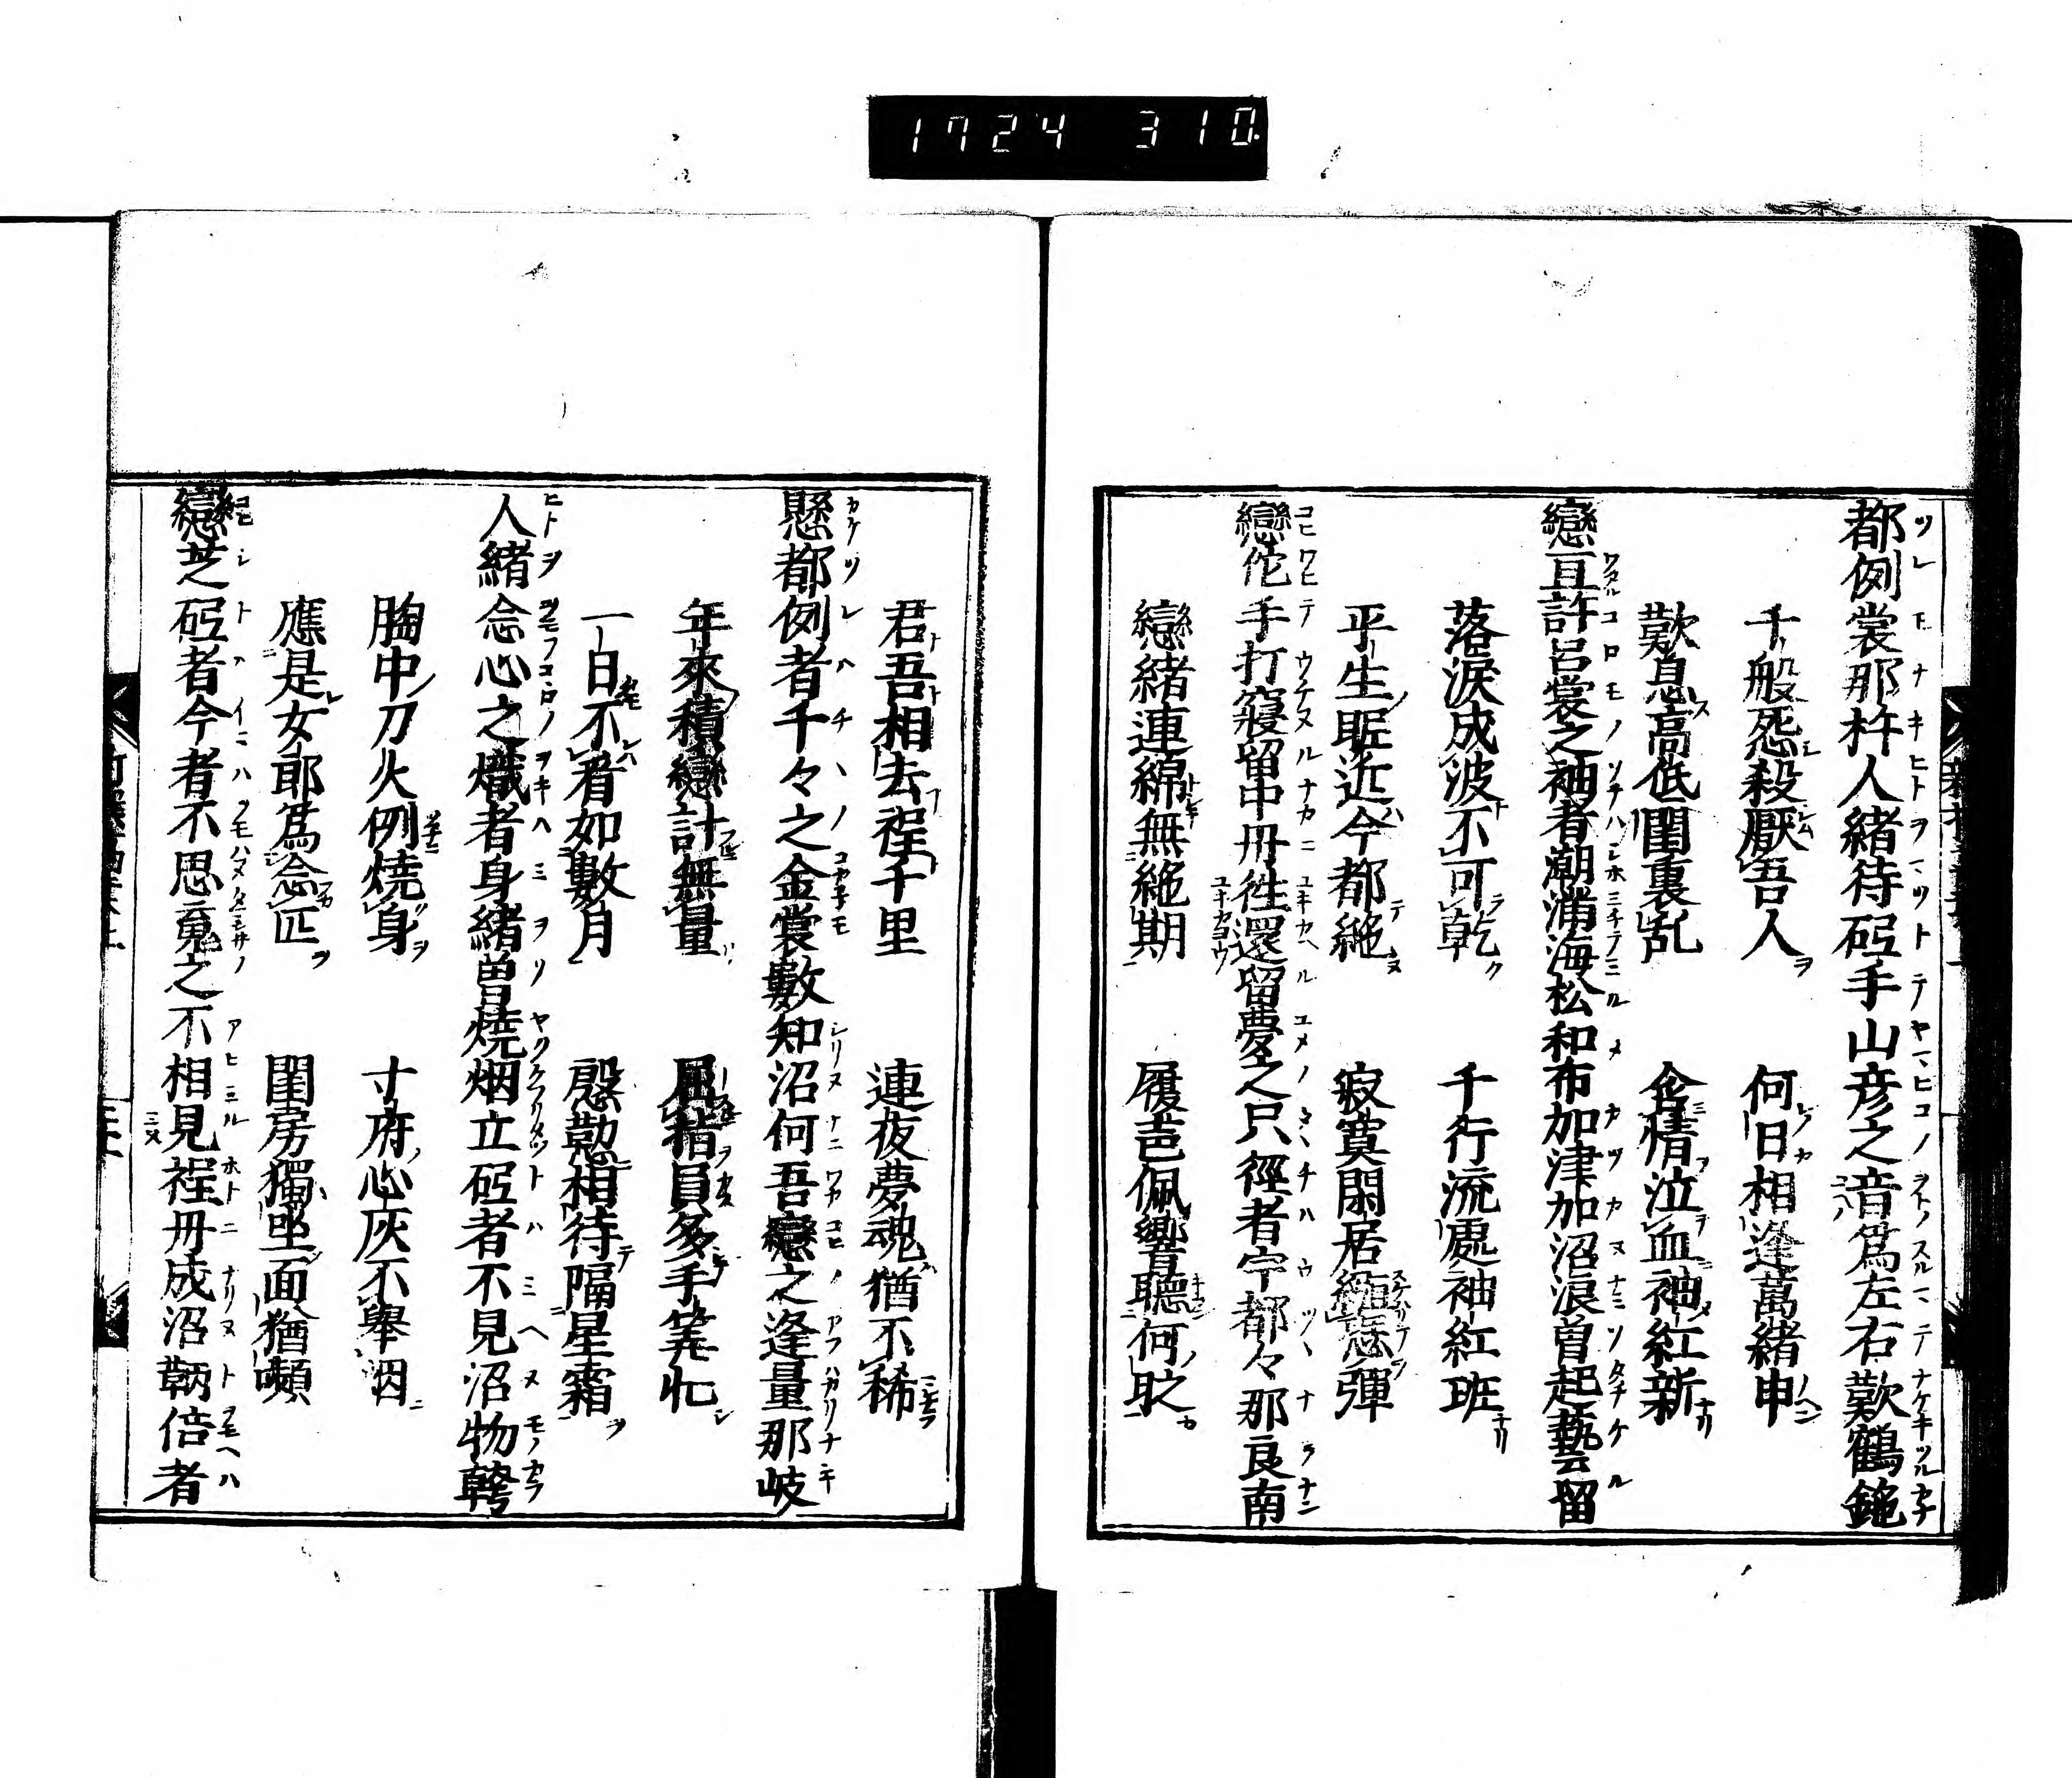 1724 310
都例裳那杵人緒待砥手山彦之音爲左右歎鶴鉇
千般怨殺厭吾人 何日相逢萬緒申
歎息高低閨裏乱 含情泣血袖紅新
戀亘許呂裳之袖者潮滿海松和布加津加沼浪曽起藝留
落淚成波不可乾 千行流處袖紅班
平生眤近今都絶 寂寞閑居緬戀彈
戀侘手打寢留中丹徃還留夢之只徑者宇都々那良南
戀緒連綿無絶期 履芭佩響聽何
君吾相去程千里 連夜夢魂猶不稀
懸都例者千々之金裳數知沼何吾戀之逢量那岐
年來積戀計無量 屈指員多手筭忙
一日不看如數月 慇懃相待隔星霜
人緒念心之熾者身緒曽燒烟立砥者不見沼物鞾
胸中刀火例燒身 寸府心灰不擧烟
應是女郎爲念匹 閨房獨坐面猶嚬
戀芝砥者今者不思䰟之不相見程丹成沼鞆倍者